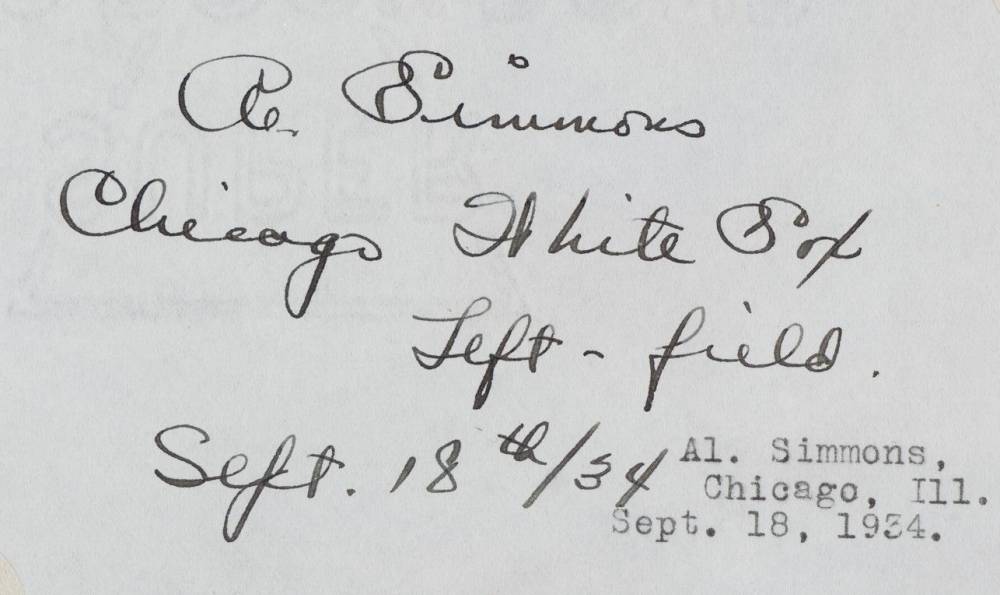 Al. Simmons
Chicago White Sox
Left - field.
Sept. 18th/34
Al. Simmons,
Chicago, Ill.
Sept. 18, 1934.